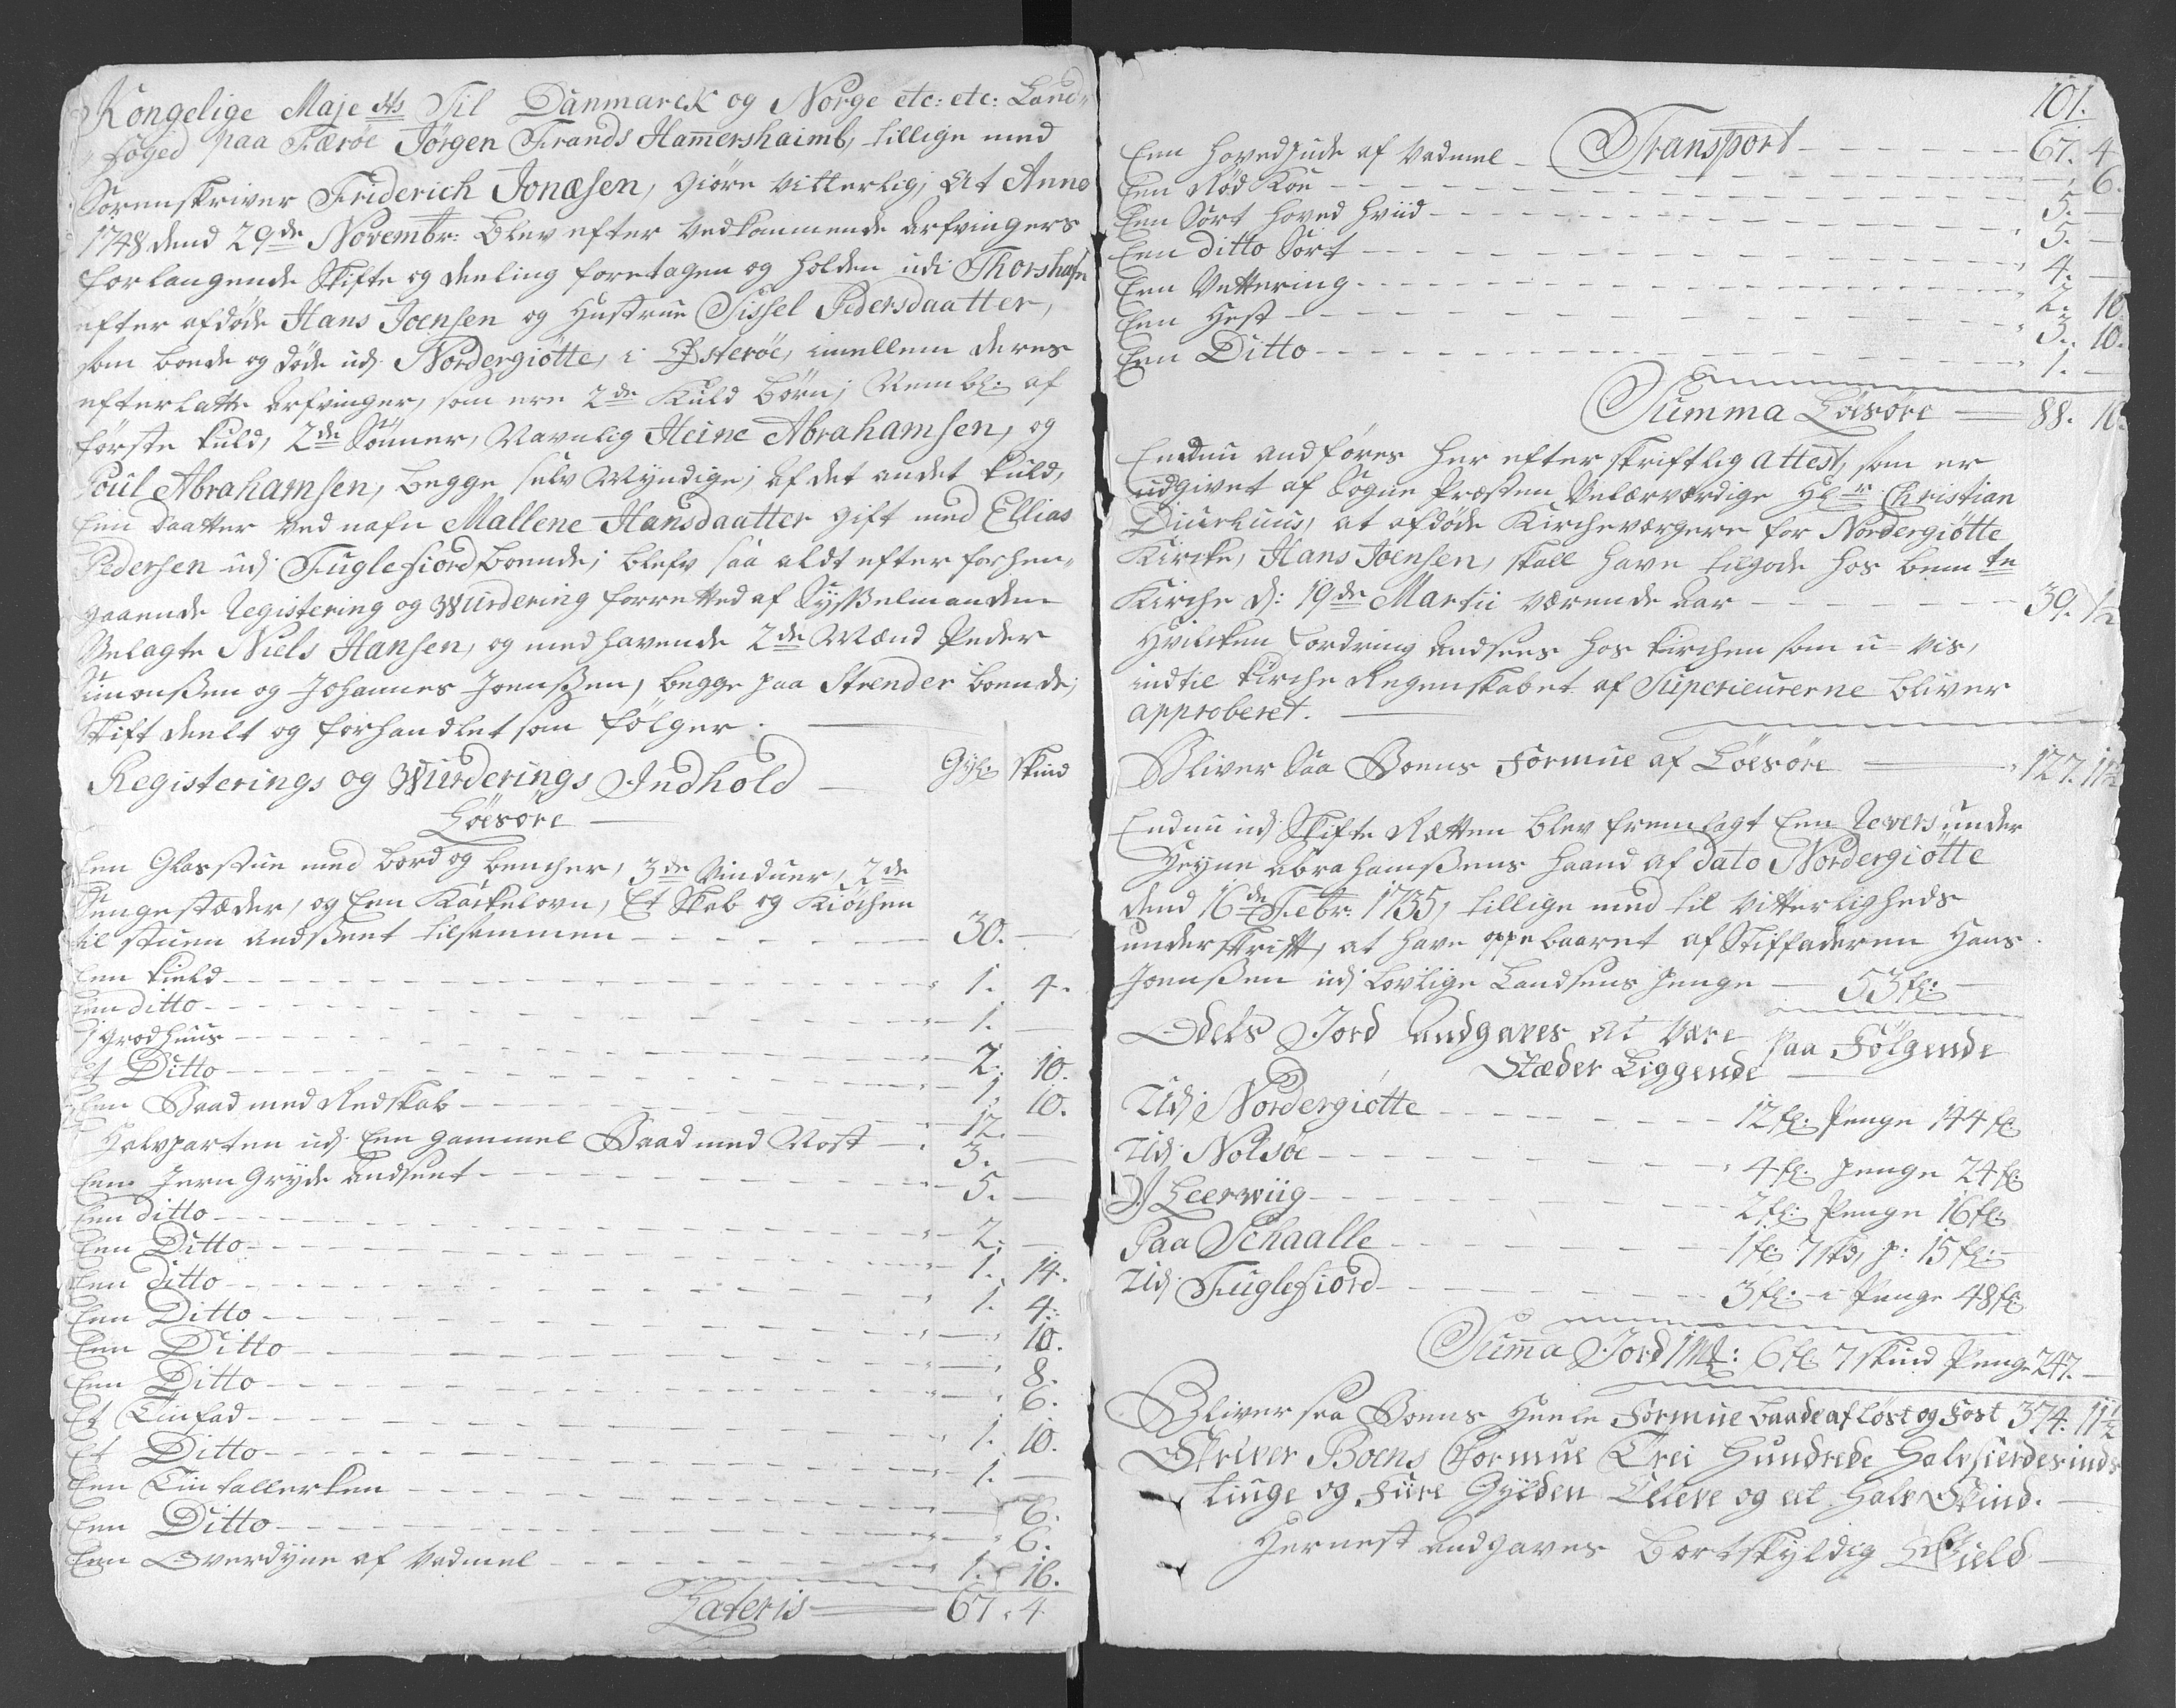 Kongelige Maje sts Til Danmarck og Norge etc: etc: Land„
„foged paa Færöe Jörgen Frands Hamershaimb, tillige med
Sorenskriver Friderich Jonæsen, giöre vitterlig; At Anno
1748 dend 29de Novembr: blev efter vedkommende Arfvingers
forlangende Skifte og deeling foretagen og holden udi Thorshafn
efter afdöde Hans Joensen og Hustrue Sissel Pedersdaatter,
som boede og döde udj Nordergiötte, i Österöe, imellem deres
efterlatte Arfvinger, som ere 2de Kuld börn; Nembl: af
förste kuld, 2de Sönner, Navnlig Heine Abrahamsen, og
Poul Abrahamsen, begge selv Myndige; af det andet kuld,
Een daatter ved nafn Mallene Hansdaatter gift med Ellias
Pedersen udj Fuglefiord boende; blefv saa aldt efter forhen„
gaaende Registering og Wurdering forretted af Sysselmanden
Velagte Niels Hansen, og medhavende 2de Mænd Peder
Simonssen og Johannes Joenssen, begge paa Strender boende;
Skift deelt og forhandlet som fölger.
Registerings og Wurderings Indhold Gylr Skind
Löesöre
Een Glasstue med bord og bencher, 3de Vinduer, 2de
Sengestæder, og Een Kackelovn, Et Skab og Kiöchen
til stuen andssent tilsammen 30. —
Een kield 1. 4.
Een ditto 1. —
1 grodhuus 2. 10.
Et Ditto 1. 10.
Een Baad med Redskab 12. —
Halvparten udj Een gammel Baad med Nost 3. —
Een Jern Gryde andseet 5. —
Een ditto 2. —
Een Ditto 1. 14.
Een ditto 1. 4.
Een Ditto — 10.
Een Ditto — 8.
Een Ditto — 6.
Et Tinfad 1. 10.
Et Ditto 1. —
Een Tin tallerken — 6.
Een Ditto — 6.
Een Overdyne af Vadmel 1. 16.
Lateris 67. 4
101.
Transport 67. 4
Een hovedpude af Vadmel — 6.
Een Röd Koe 5. —
Een Sort hoved hviid 5. —
Een ditto Sort 4. —
Een Vettering 2. 10
Een Hest 3. 10.
Een Ditto 1. —
Summa Löesöre 88. 10.
Endnu andföres her efter skriftlig Attest, som er
udgivet af Sogne Præsten Velærværdige Hr Christian
Diurhuus, at afdöde Kircheværgere for Nordergiötte
Kircke, Hans Joensen, skall have tilgode hos bemte
Kirche d: 19de Martii værende Aar 39. 1/2
Hvilcken fordring andsees hos kirchen som u=vis,
indtil kirche Regenskabet af Superieurerne bliver
approberet.
Bliver Saa Boens Formue af Löesöre 127. 11 1/2
Endnu udj Skifte Retten blev fremlagt Een Revers under
Heyne Abrahamssens haand af dato Nordergiötte
dend 16de Febr: 1735, tillige med til vitterligheds
underskrift, at have oppebaaret af Stiffaderen Hans
Joenssen udj lovlige Landsens penge — 53 fl:
Odels Jord Andgaves At være paa Fölgende
Stæder Liggende
Udj Nordergiötte 12 fl: penge 144 fl:
Udj Nolsöe 4 fl: penge 24 fl:
Leerwiig 2 fl: penge 16 fl:
Paa Schaalle 1 fl: 7 sk, p: 15 fl:
Udj Fuglefiord 3 fl: — penge 48 fl:
Suma Jord 1 Mk: 6 fl: 7 skind penge 247. —
Bliver saa Boens Heele Formue baade af löst og Fast 374. 11 1/2
Skriver Boens Formue Trei Hundrede Halvfierdesinds
tiuge og Fiire Gylden Elleve og eet halv Skind.
Hernest andgaves bortskyldig Gield